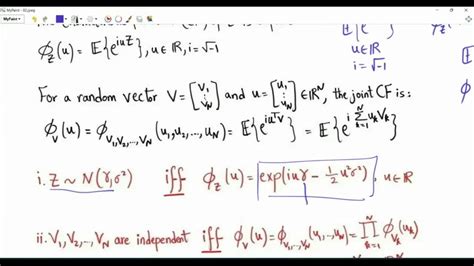 MyPaint - 02.jpeg
MyPaint
ϕ_Z(u) = E{e^{iuZ}}, u∈ℝ, i=√-1
E{e
u∈ℝ
i=√-1
For a random vector V=[V₁ ⋮ V_N] and u=[u₁ ⋮ u_N]∈ℝ^N, the joint CF is:
ϕ_V(u) = ϕ_{V₁,V₂,...,V_N}(u₁,u₂,...,u_N) = E{e^{iu^T V}} = E{e^{i Σ_{k=1}^N u_k V_k}}
i. Z ~ N(γ,σ²) iff ϕ_Z(u) = exp(iuγ - 1/2 u²σ²), u∈ℝ
ii. V₁,V₂,...,V_N are independent iff ϕ_V(u) = ϕ_{V₁,...,V_N}(u₁,...,u_N) = ∏_{k=1}^N ϕ_{V_k}(u_k)